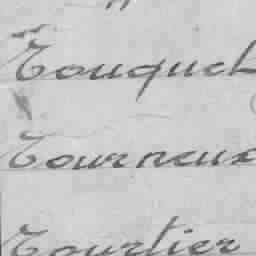 Touquet
Tourneux
Tourtier